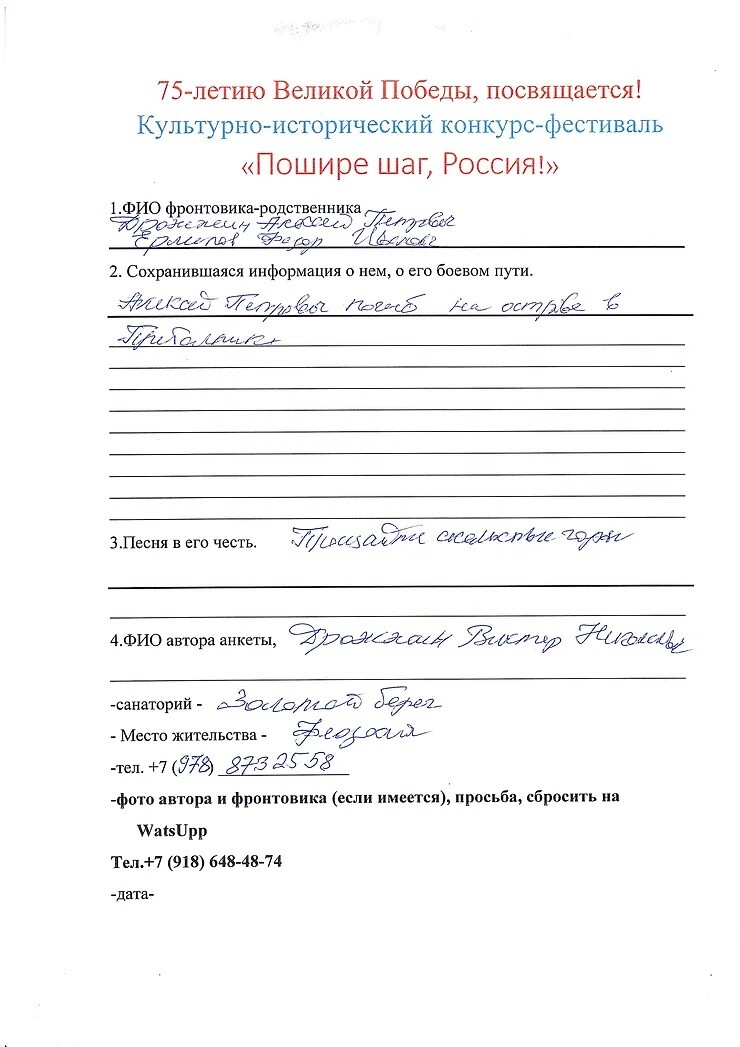 75-летию Великой Победы, посвящается!
Культурно-исторический конкурс-фестиваль
«Пошире шаг, Россия!»
1.ФИО фронтовика-родственника
Дрожжин Алексей Петрович
Ермилов Федор Иванович
2. Сохранившаяся информация о нем, о его боевом пути.
Алексей Петрович погиб на острове в
Прибалтике
3.Песня в его честь. Прощайте скалистые горы
4.ФИО автора анкеты, Дрожжин Виктор Николаевич
-санаторий - Золотой берег
- Место жительства - Феодосия
-тел. +7 (978) 873 25 58
-фото автора и фронтовика (если имеется), просьба, сбросить на
WatsUpp
Тел.+7 (918) 648-48-74
-дата-